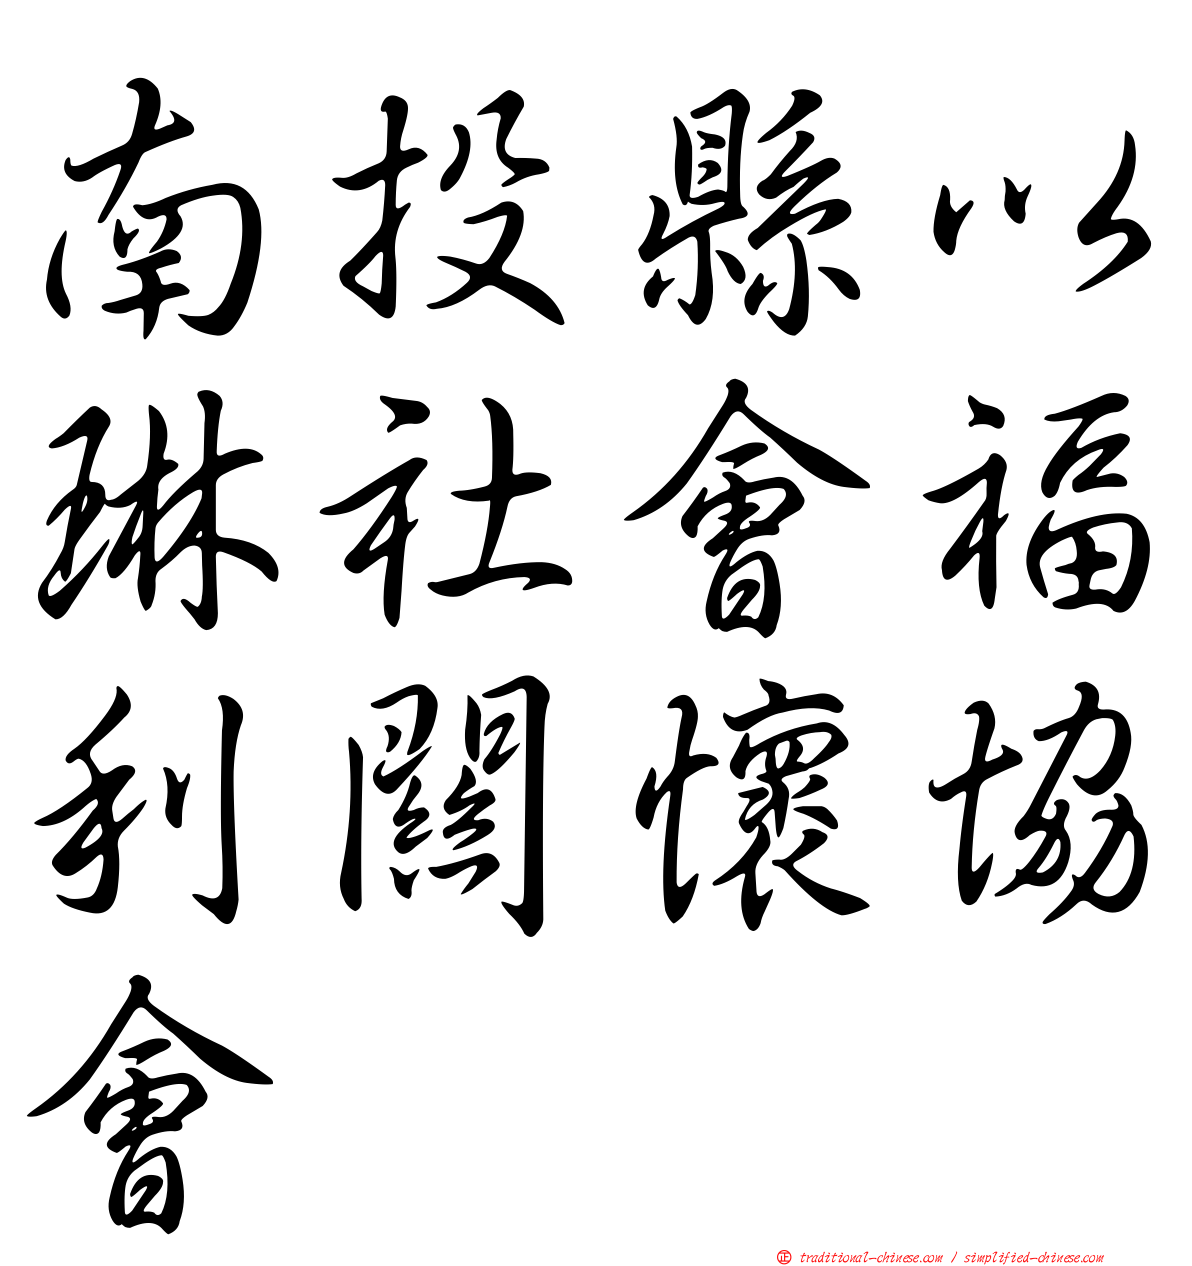 南投縣以
琳社會福
利關懷協
會
正 traditional-chinese.com / simplified-chinese.com